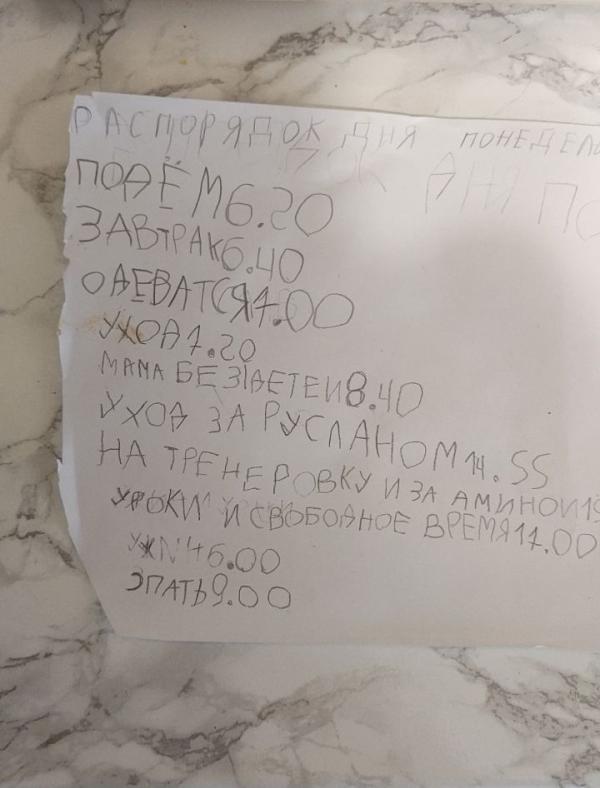 РАСПОРЯДОК ДНЯ ПОНЕДЕЛ
ПОДЁМ 6.20
ЗАВТРАК 6.40
ОДЕВАТСЯ 7.00
УХОД 7.20
МАМА БЕЗ ДЕТЕЙ 8.40
УХОД ЗА РУСЛАНОМ 14.55
НА ТРЕНЕРОВКУ И ЗА АМИНОЙ 15
УРОКИ И СВОБОДНОЕ ВРЕМЯ 17.00
УЖИН 6.00
ЗПАТЬ 9.00